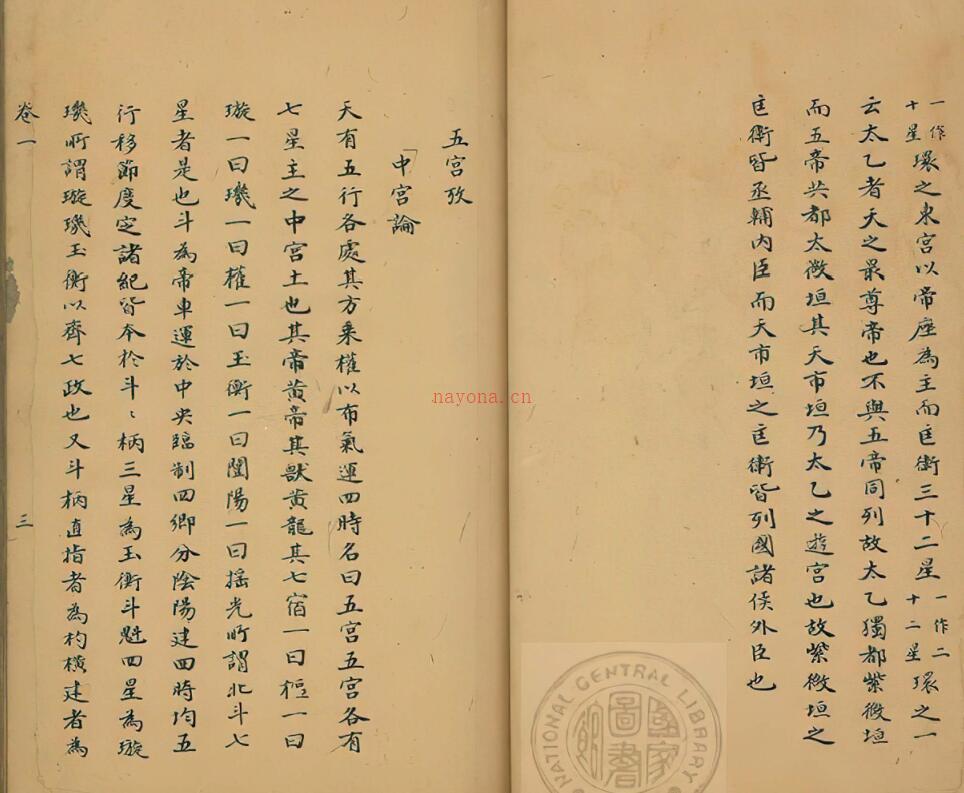 一作十星環之東宮以帝座為主而匡衛三十二星一作二十二星環之一
云太乙者天之最尊帝也不與五帝同列故太乙獨都紫微垣
而五帝共都太微垣其天市垣乃太乙之遊宮也故紫微垣之
匡衛皆丞輔內臣而天市垣之匡衛皆列國諸侯外臣也
五宮攷
中宮論
天有五行各處其方乘權以布氣運四時名曰五宮五宮各有
七星主之中宮土也其帝黃帝其獸黃龍其七宿一曰樞一曰
璇一曰璣一曰權一曰玉衡一曰闓陽一曰搖光所謂北斗七
星者是也斗為帝車運於中央臨制四鄉分陰陽建四時均五
行移節度定諸紀皆本於斗〻柄三星為玉衡斗魁四星為璇
璣所謂璇璣玉衡以齊七政也又斗柄直指者為杓橫建者為
卷一
三
nayona.cn
NATIONAL CENTRAL LIBRARY
國家圖書館